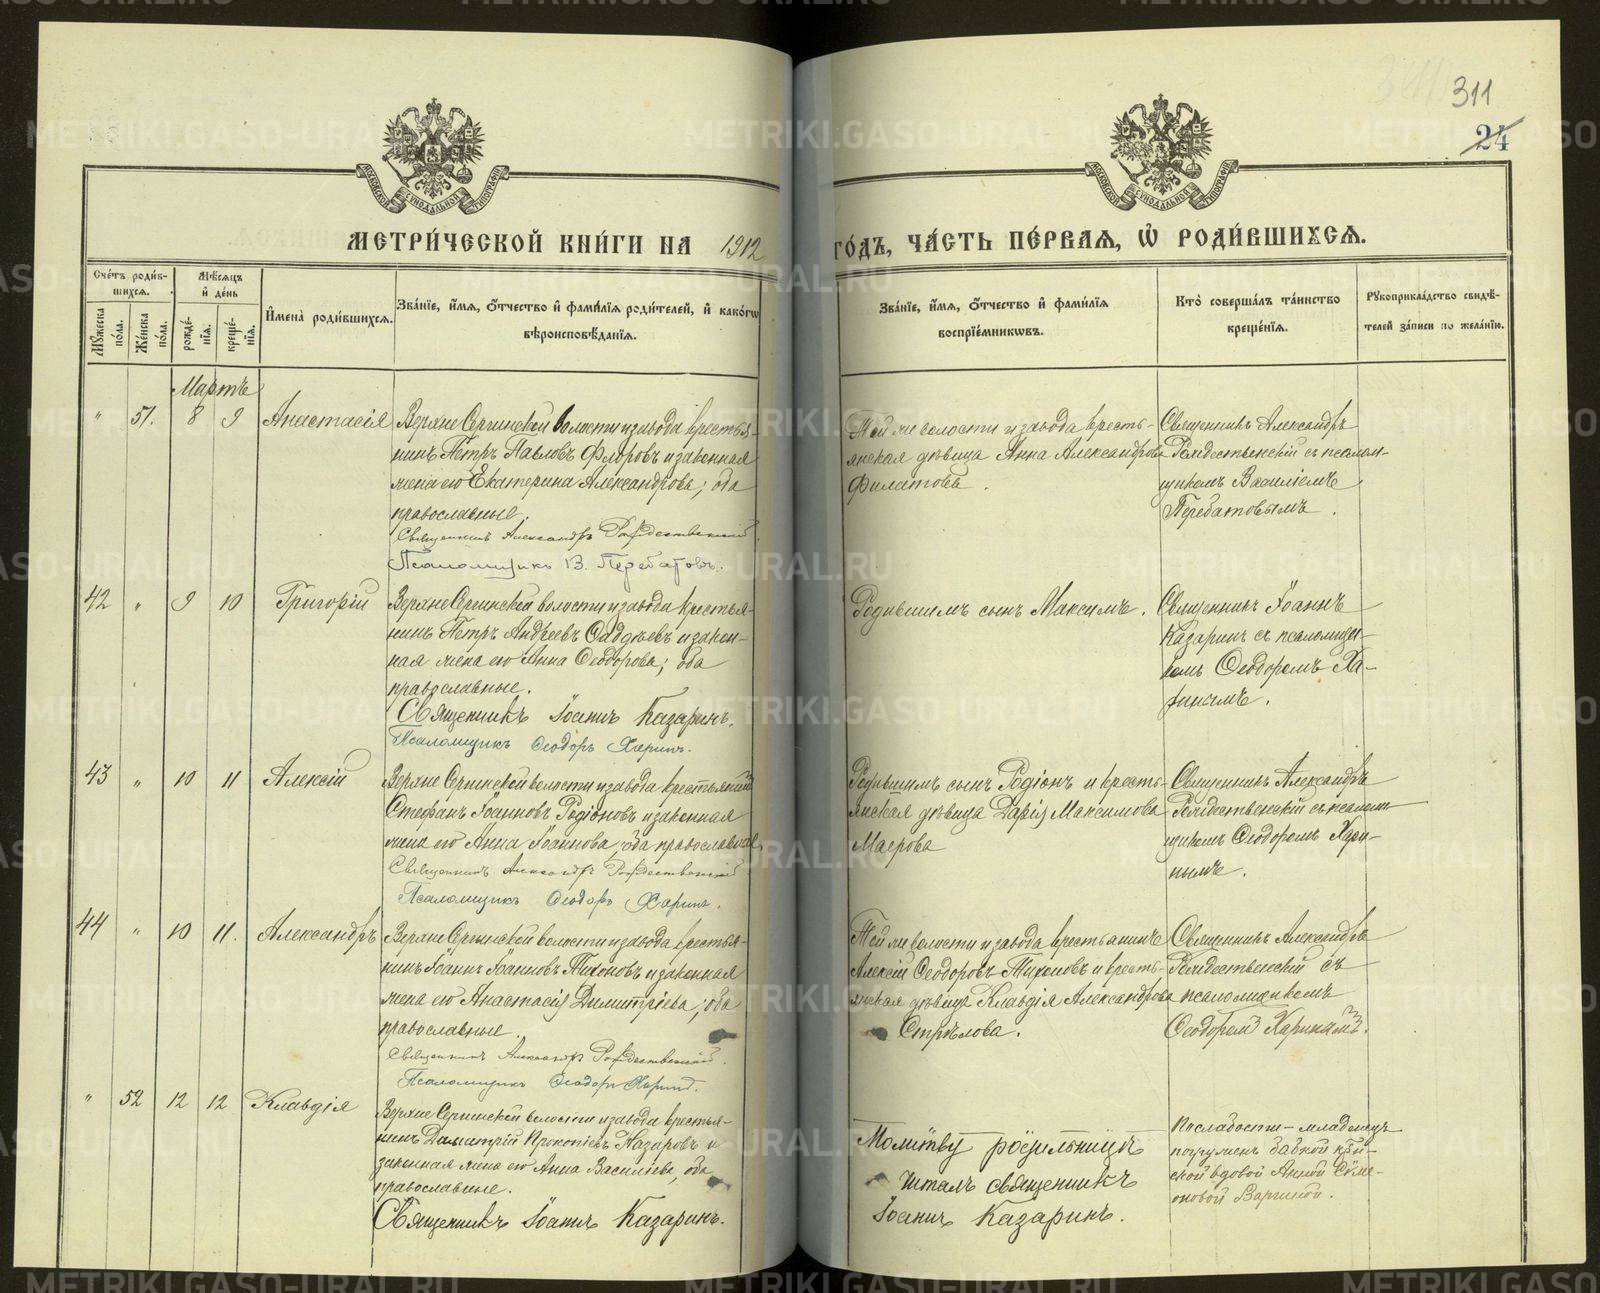 311
24
МОСКОВСКОЙ СѴНОДАЛЬНОЙ ТИПОГРАФІИ
МОСКОВСКОЙ СѴНОДАЛЬНОЙ ТИПОГРАФІИ
МЕТРИ́ЧЕСКОЙ КНИ́ГИ НА 1912 ГО́ДЪ, ЧА́СТЬ ПЕ́РВАЯ, Ѡ҆ РОДИ́ВШИХСЯ.
Сче́тъ роди́в-
шихся.
Мѣ́сяцъ
и҆ де́нь
Мꙋ́жеска по́ла.
Же́нска по́ла.
рожде́нїя.
креще́нїя.
И҆мена̀ роди́вшихся.
Зва́нїе, и҆́мя, ѻ҆́тчество и҆ фами́лїя роди́телей, и҆ како́гѡ
вѣроисповѣ́данїя.
Зва́нїе, и҆́мя, ѻ҆́тчество и҆ фами́лїя
воспрїе́мникѡвъ.
Кто̀ соверша́лъ та́инство
креще́нїя.
Рꙋкоприкла́дство свидѣ́-
телей за́писи по жела́нїю.
Мартъ
" 51. 8 9 Анастасія
Верхне Сергинской волости и завода крестья-
нинъ Петръ Павловъ Флоровъ и законная
жена его Екатерина Александрова; оба
православные.
Священникъ Александръ Рождественскій.
Псаломщикъ В. Перебатовъ.
Той же волости и завода кресть-
янская дѣвица Анна Александрова
Филатова.
Священникъ Александръ
Рождественскій съ псалом-
щикомъ Василіемъ
Перебатовымъ.
42 " 9 10 Григорій
Верхне Сергинской волости и завода крестья-
нинъ Петръ Андреевъ Фаддѣевъ и закон-
ная жена его Анна Ѳеодорова; оба
православные.
Священникъ Іоаннъ Казаринъ.
Псаломщикъ Ѳеодоръ Харинъ.
Родившимъ сынъ Максимъ.
Священникъ Іоаннъ
Казаринъ съ псаломщи-
комъ Ѳеодоромъ Ха-
ринымъ.
43 " 10 11 Алексій
Верхне Сергинской волости и завода крестьянинъ
Стефанъ Іоанновъ Родіоновъ и законная
жена его Анна Іоаннова, оба православные.
Священникъ Александръ Рождественскій
Псаломщикъ Ѳеодоръ Харинъ.
Родившимъ сынъ Родіонъ и кресть-
янская дѣвица Дарія Максимова
Маерова
Священникъ Александръ
Рождественскій съ псалом-
щикомъ Ѳеодоромъ Хари-
нымъ.
44 " 10 11. Александръ
Верхне Сергинской волости и завода крестья-
нинъ Іоаннъ Іоанновъ Тихоновъ и законная
жена его Анастасія Димитріева; оба
православные.
Священникъ Александръ Рождественскій.
Псаломщикъ Ѳеодоръ Харинъ.
Той же волости и завода крестьянинъ
Алексій Ѳеодоровъ Тихоновъ и кресть-
янская дѣвица Клавдія Александрова
Стрѣлова.
Священникъ Александръ
Рождественскій съ
псаломщикомъ
Ѳеодоромъ Харинымъ.
" 52 12 12 Клавдія
Верхне Сергинской волости и завода крестья-
нинъ Димитрій Прокопіевъ Назаровъ и
законная жена его Анна Васильева, оба
православные.
Священникъ Іоаннъ Казаринъ.
Молитву родильницѣ
читалъ священникъ
Іоаннъ Казаринъ.
По слабости младенецъ
погруженъ бабкой крѣ-
ской вдовой Анной Симе-
оновой
METRIKI.GASO-URAL.RU